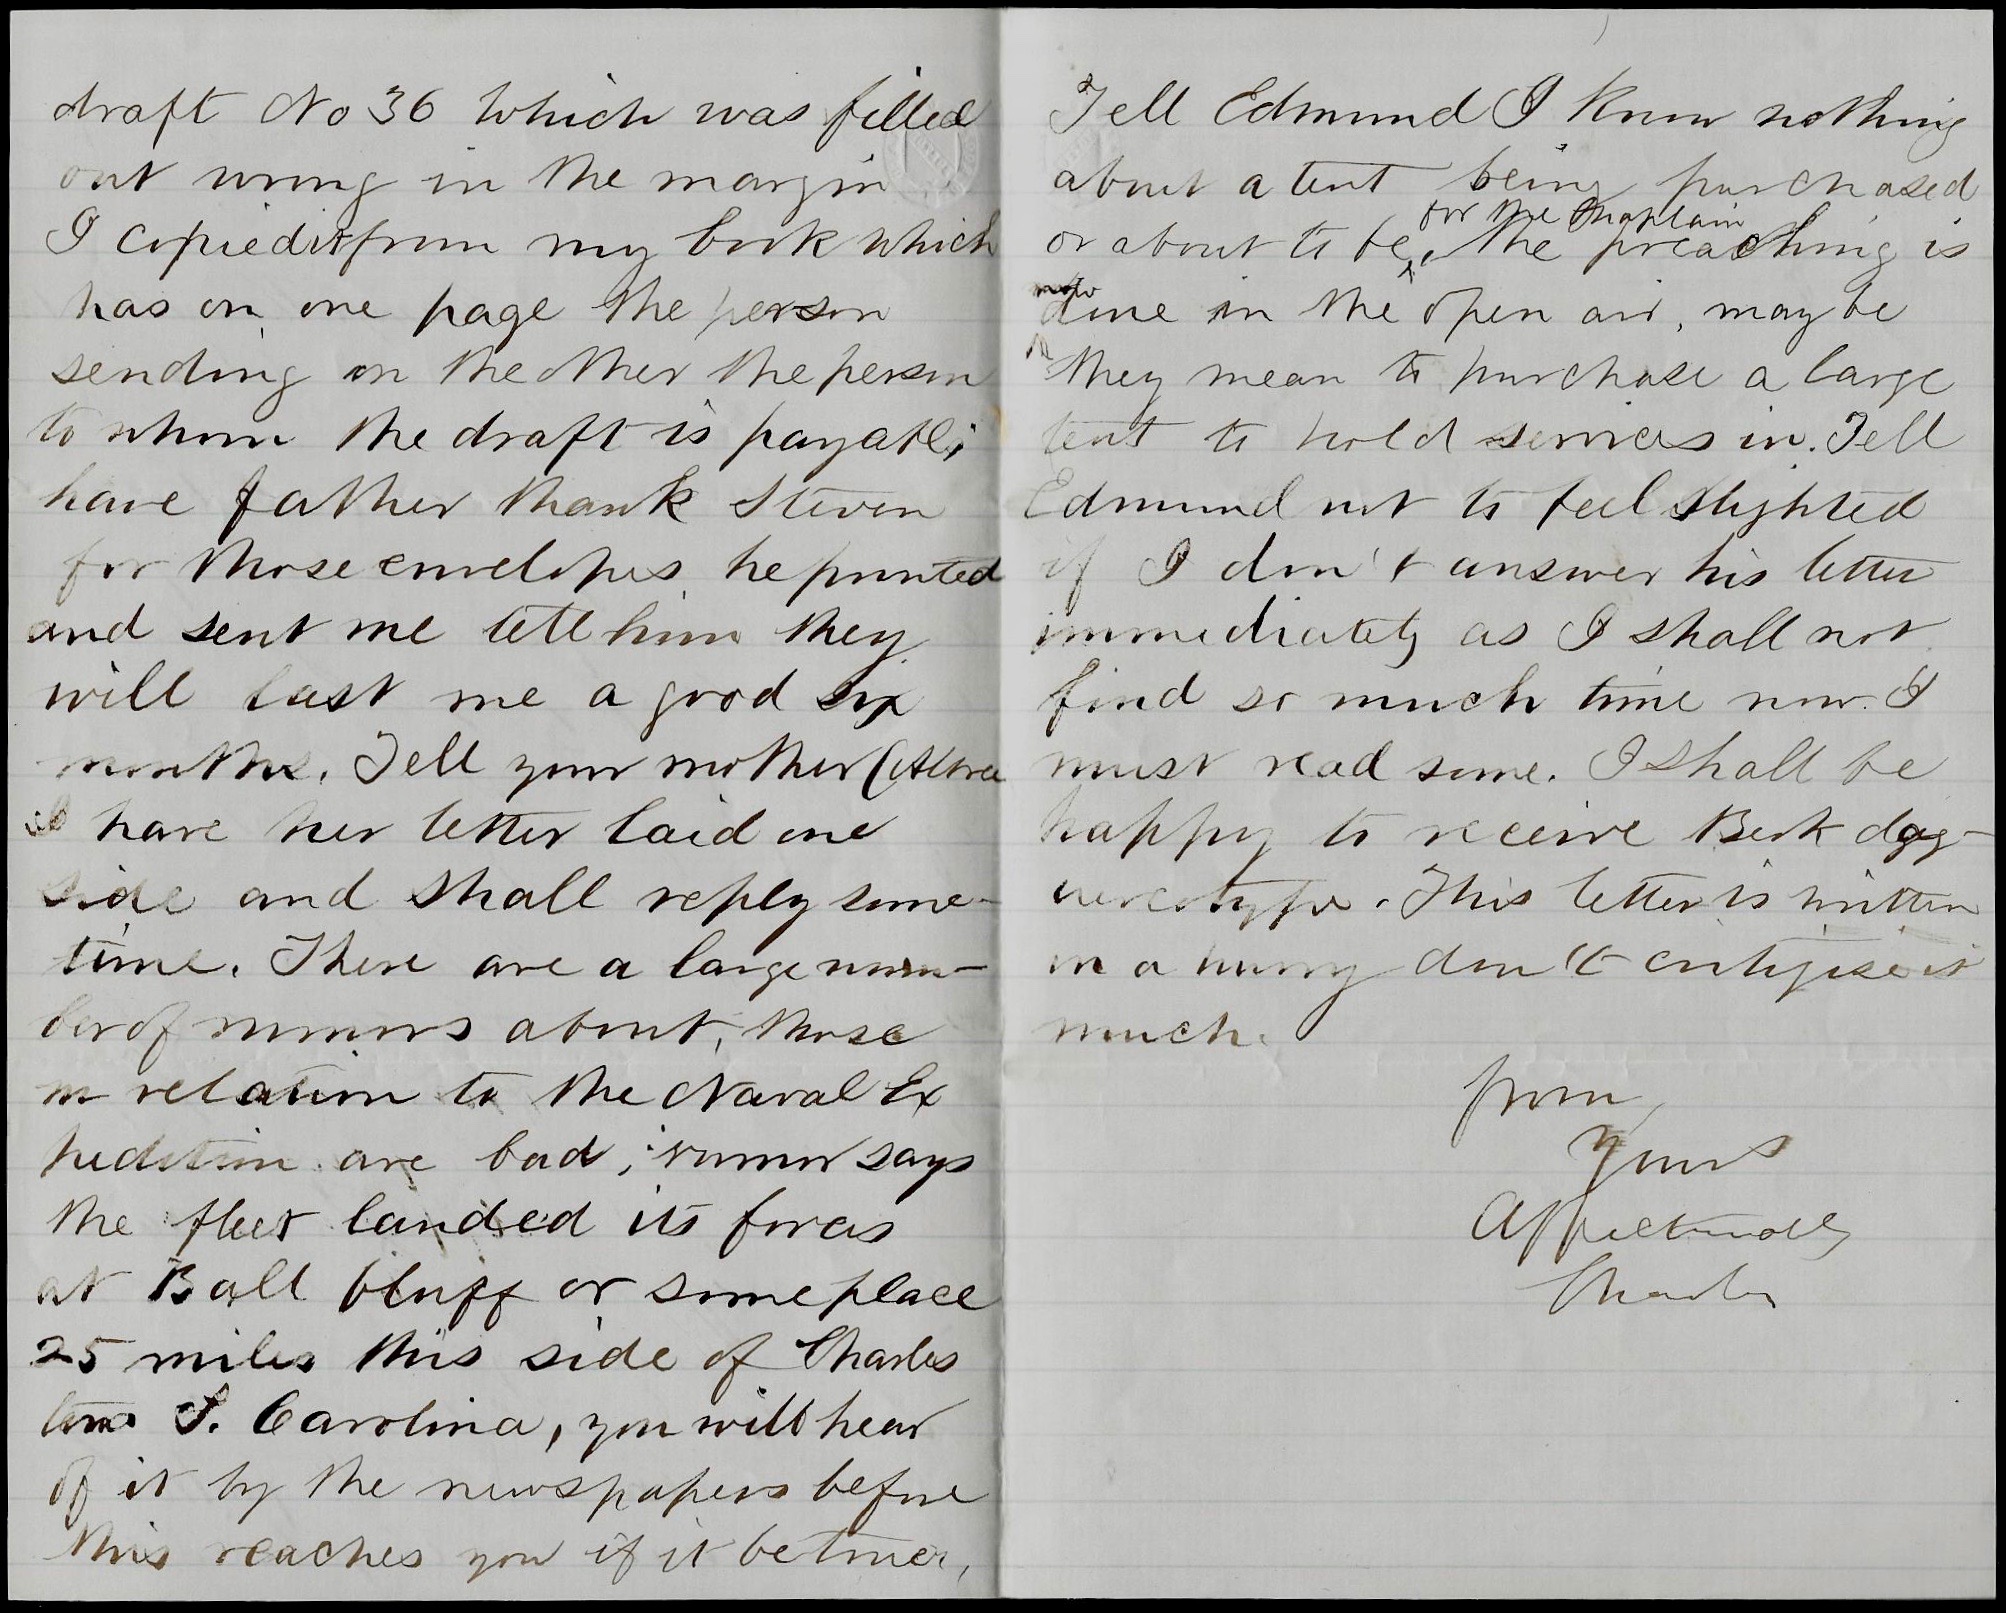 draft No 36 which was filled
out wrong in the margin
I copied it from my book which
has on one page the person
sending on the other the person
to whom the draft is payable;
have father thank Steven
for those envelopes he printed
and sent me tell him they
will last me a good six
months. Tell your mother (
I have her letter laid one
side and shall reply some-
time. There are a large num-
ber of rumors about, those
in relation to the Naval Ex
pedition are bad; rumor says
the fleet landed its forces
at Ball bluff or some place
25 miles this side of Charles
ton S. Carolina, you will hear
of it by the newspapers before
this reaches you if it be true,
Tell Edmund I know nothing
about a tent being purchased
for the Chaplain
or about to be, the preaching is
now
done in the open air, may be
they mean to purchase a large
tent to hold services in. Tell
Edmund not to feel slighted
if I don't answer his letter
immediately as I shall not
find so much time now. I
must read some. I shall be
happy to receive Berk dagg-
uereotype. This letter is written
in a hurry don't critizise it
much.
from,
Yours
Affectionately
Charles